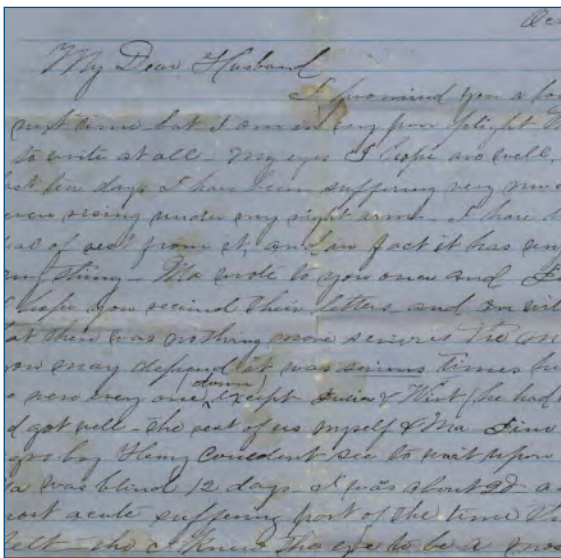 My Dear Husband
I promised you a lo
next time but I am in very poor plight
to write at all. My eyes I hope are well,
last few days I have been suffering very muc
severe rising under my right arm. I have
deal of rest from it, and in fact it has
any thing. Ma wrote to you once and
I hope you received their letters and
at there was nothing more serious the
you may depend it was serious times
e were every one (down) except Julia & Wirt (he had
d got well. The rest of us myself & Ma
gro boy Henry couldent see to wait upon
a was blind 12 days. I was about 9
most acute suffering part of the time
felt tho I knew the eye to be a mos